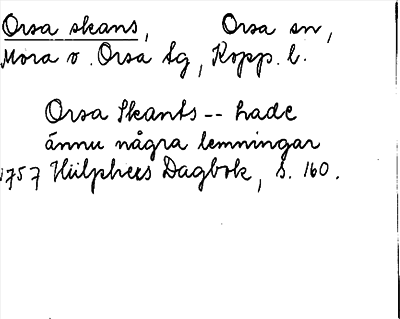 Orsa skans, Orsa sn,
Mora o. Orsa tg, Kopp. l.
Orsa Skants -- hade
ännu några lemningar
1757 Hülphers Dagbok, S. 160.